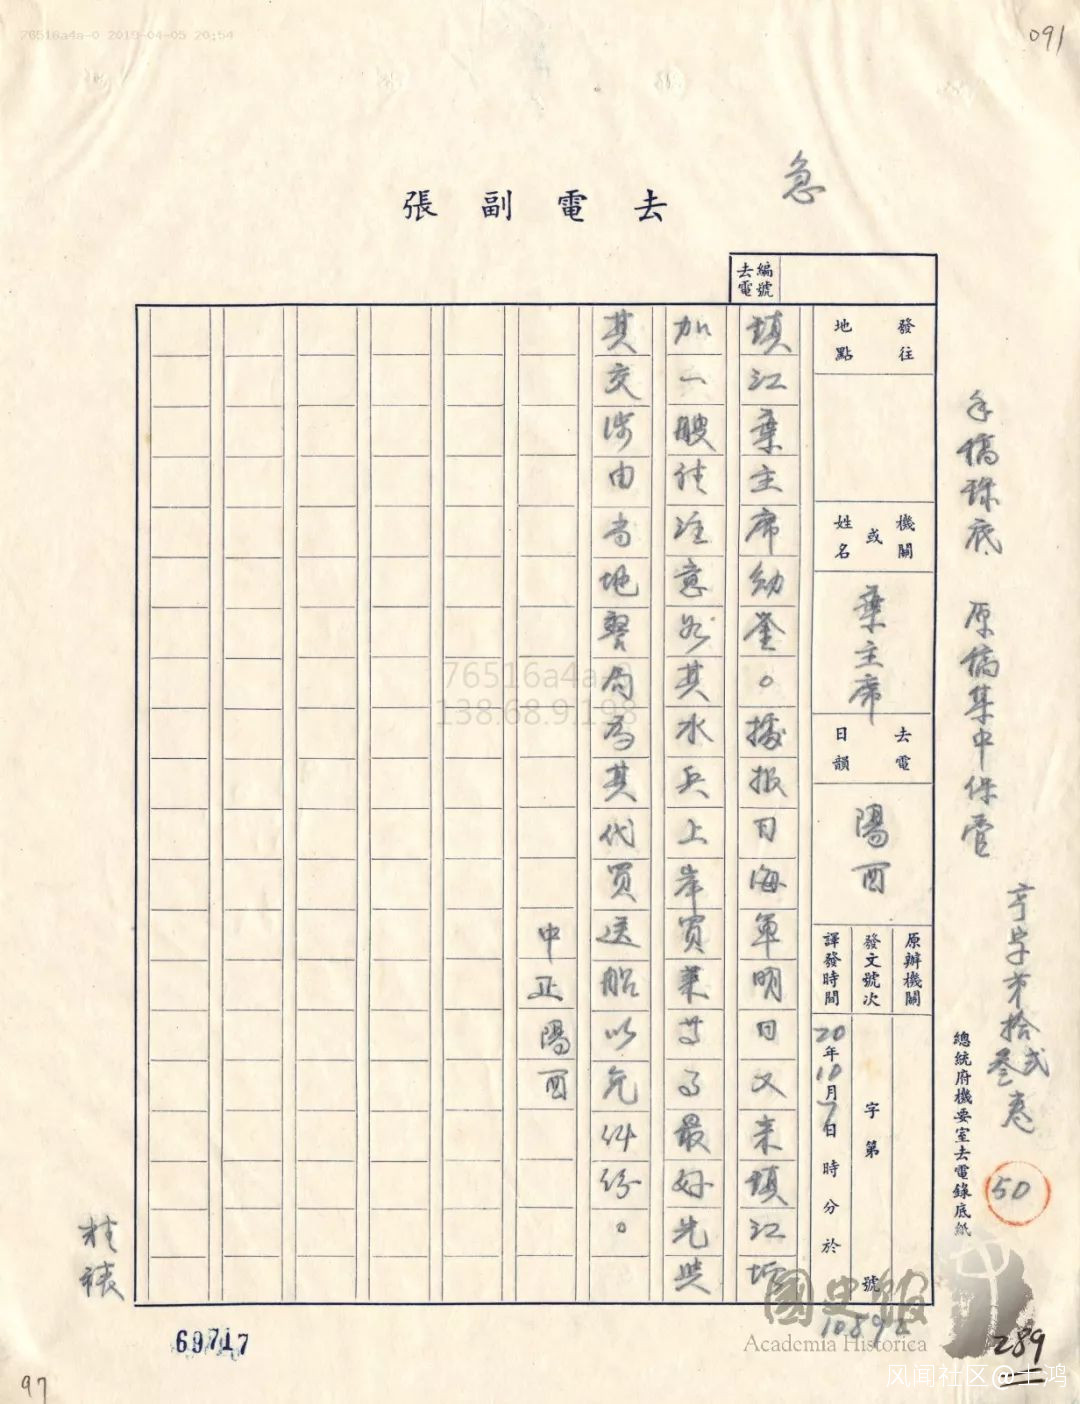 76516a4a-0 2019-04-05 20:54
091
急
去電副張
去電編號
發往地點
機關或姓名
葉主席
去電日韻
陽酉
原辦機關
發文號次
字第 號
譯發時間
20年10月7日 時 分於
鎮江葉主席勛鑒。據報日海軍明日又來鎮江
加一艘請注意於其水兵上岸買菜等事最好先與
其交涉由當地警局為其代買送船以免糾紛。
中正陽酉
手稿錄底 原稿集中保管
亨字第拾弍叁卷
總統府機要室去電錄底紙
50
76516a4a-0
138.68.9.198
桂裱
69717
97
國史館
Academia Historica
289
风闻社区@土鸿